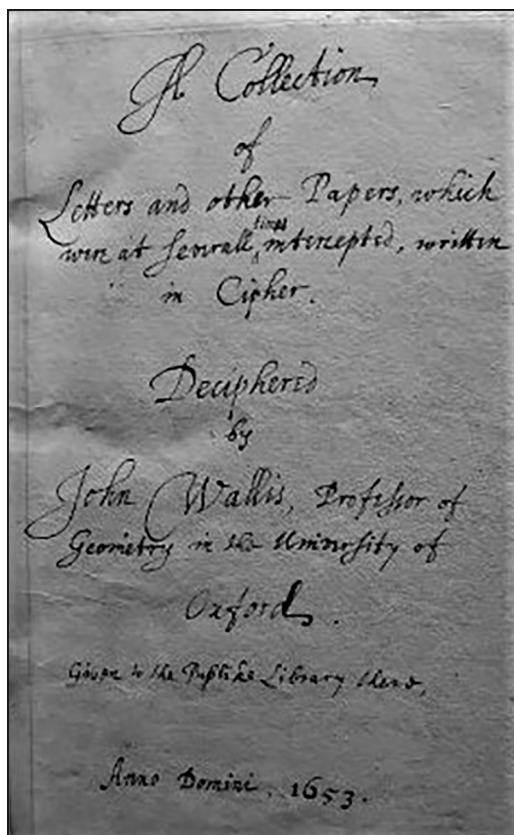 A Collection
of
Letters and other Papers, which
were at severall times intercepted, written
in Cipher.
Deciphered
by
John Wallis, Professor of
Geometry in the University of
Oxford.
Given to the Publike Library there,
Anno Domini. 1653.